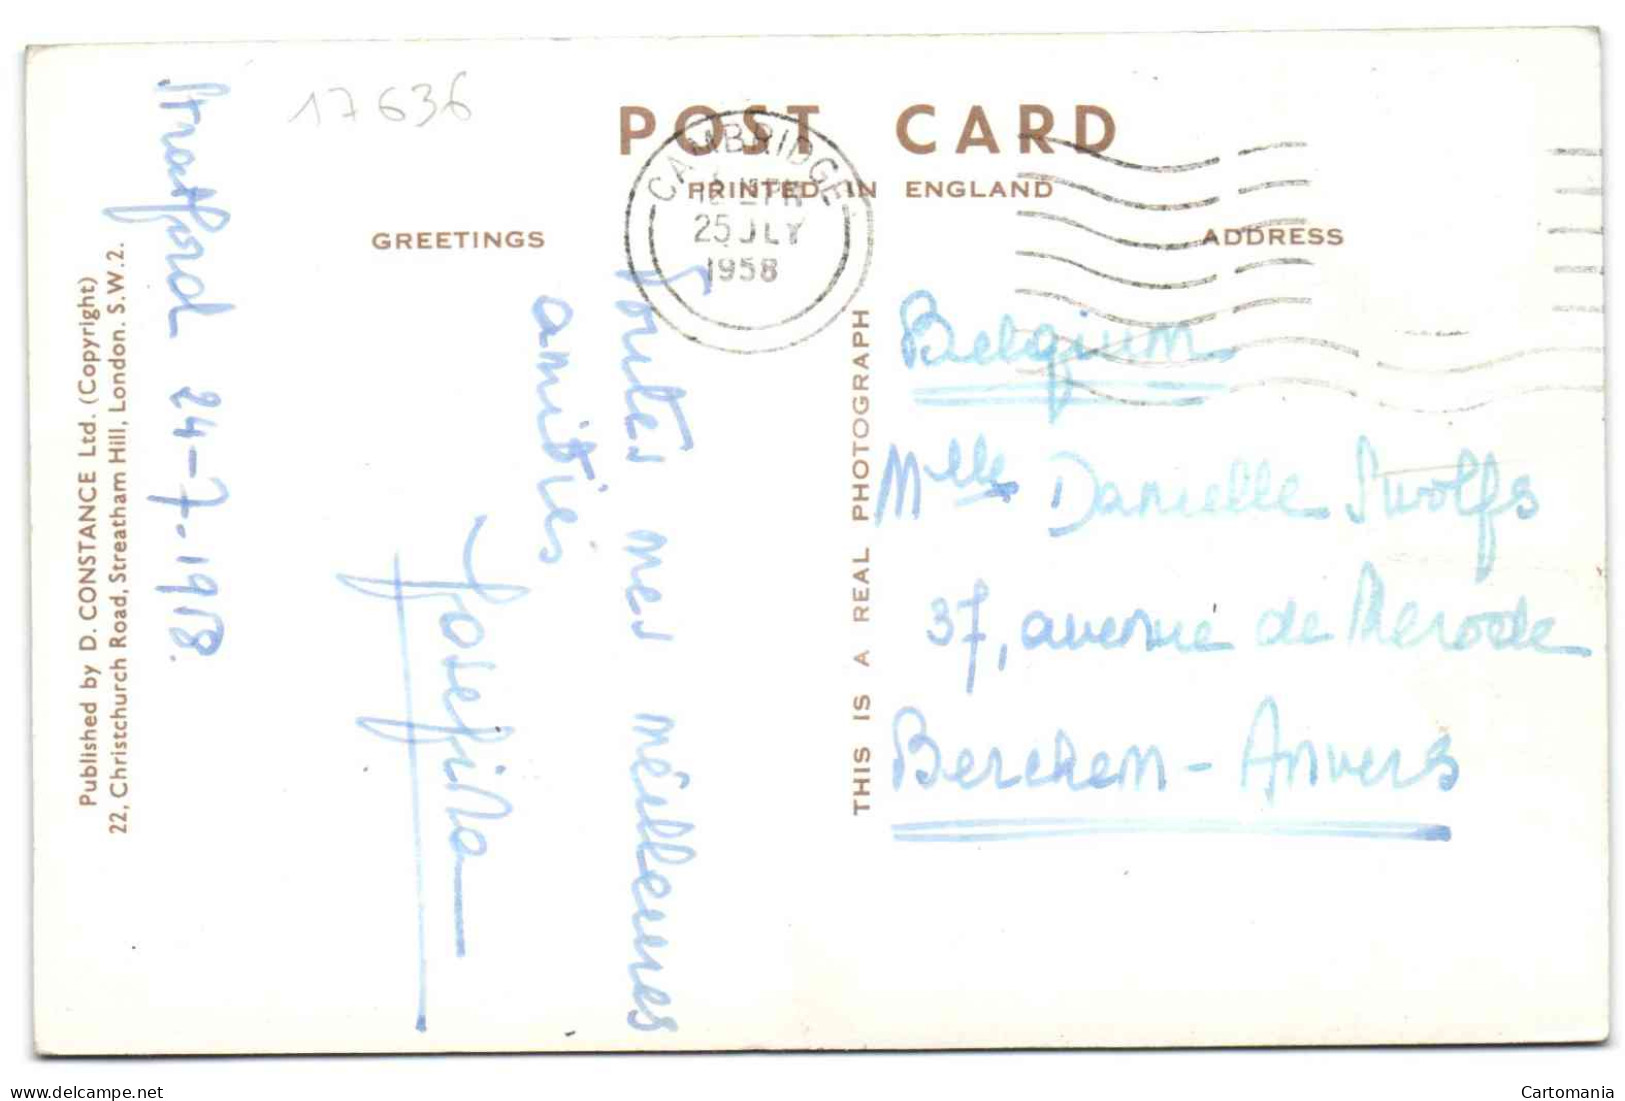 17636
POST CARD
PRINTED IN ENGLAND
GREETINGS
ADDRESS
CAMBRIDGE
25 JLY
1958
Stratford 24-7-1958
Toutes mes meilleures
amitiés
Josefina
THIS IS A REAL PHOTOGRAPH
Belgium
Mlle Danielle Swolfs
37, avenue de Merode
Berchem - Anvers
Published by D. CONSTANCE Ltd. (Copyright)
22, Christchurch Road, Streatham Hill, London. S.W.2.
www.delcampe.net
Cartomania